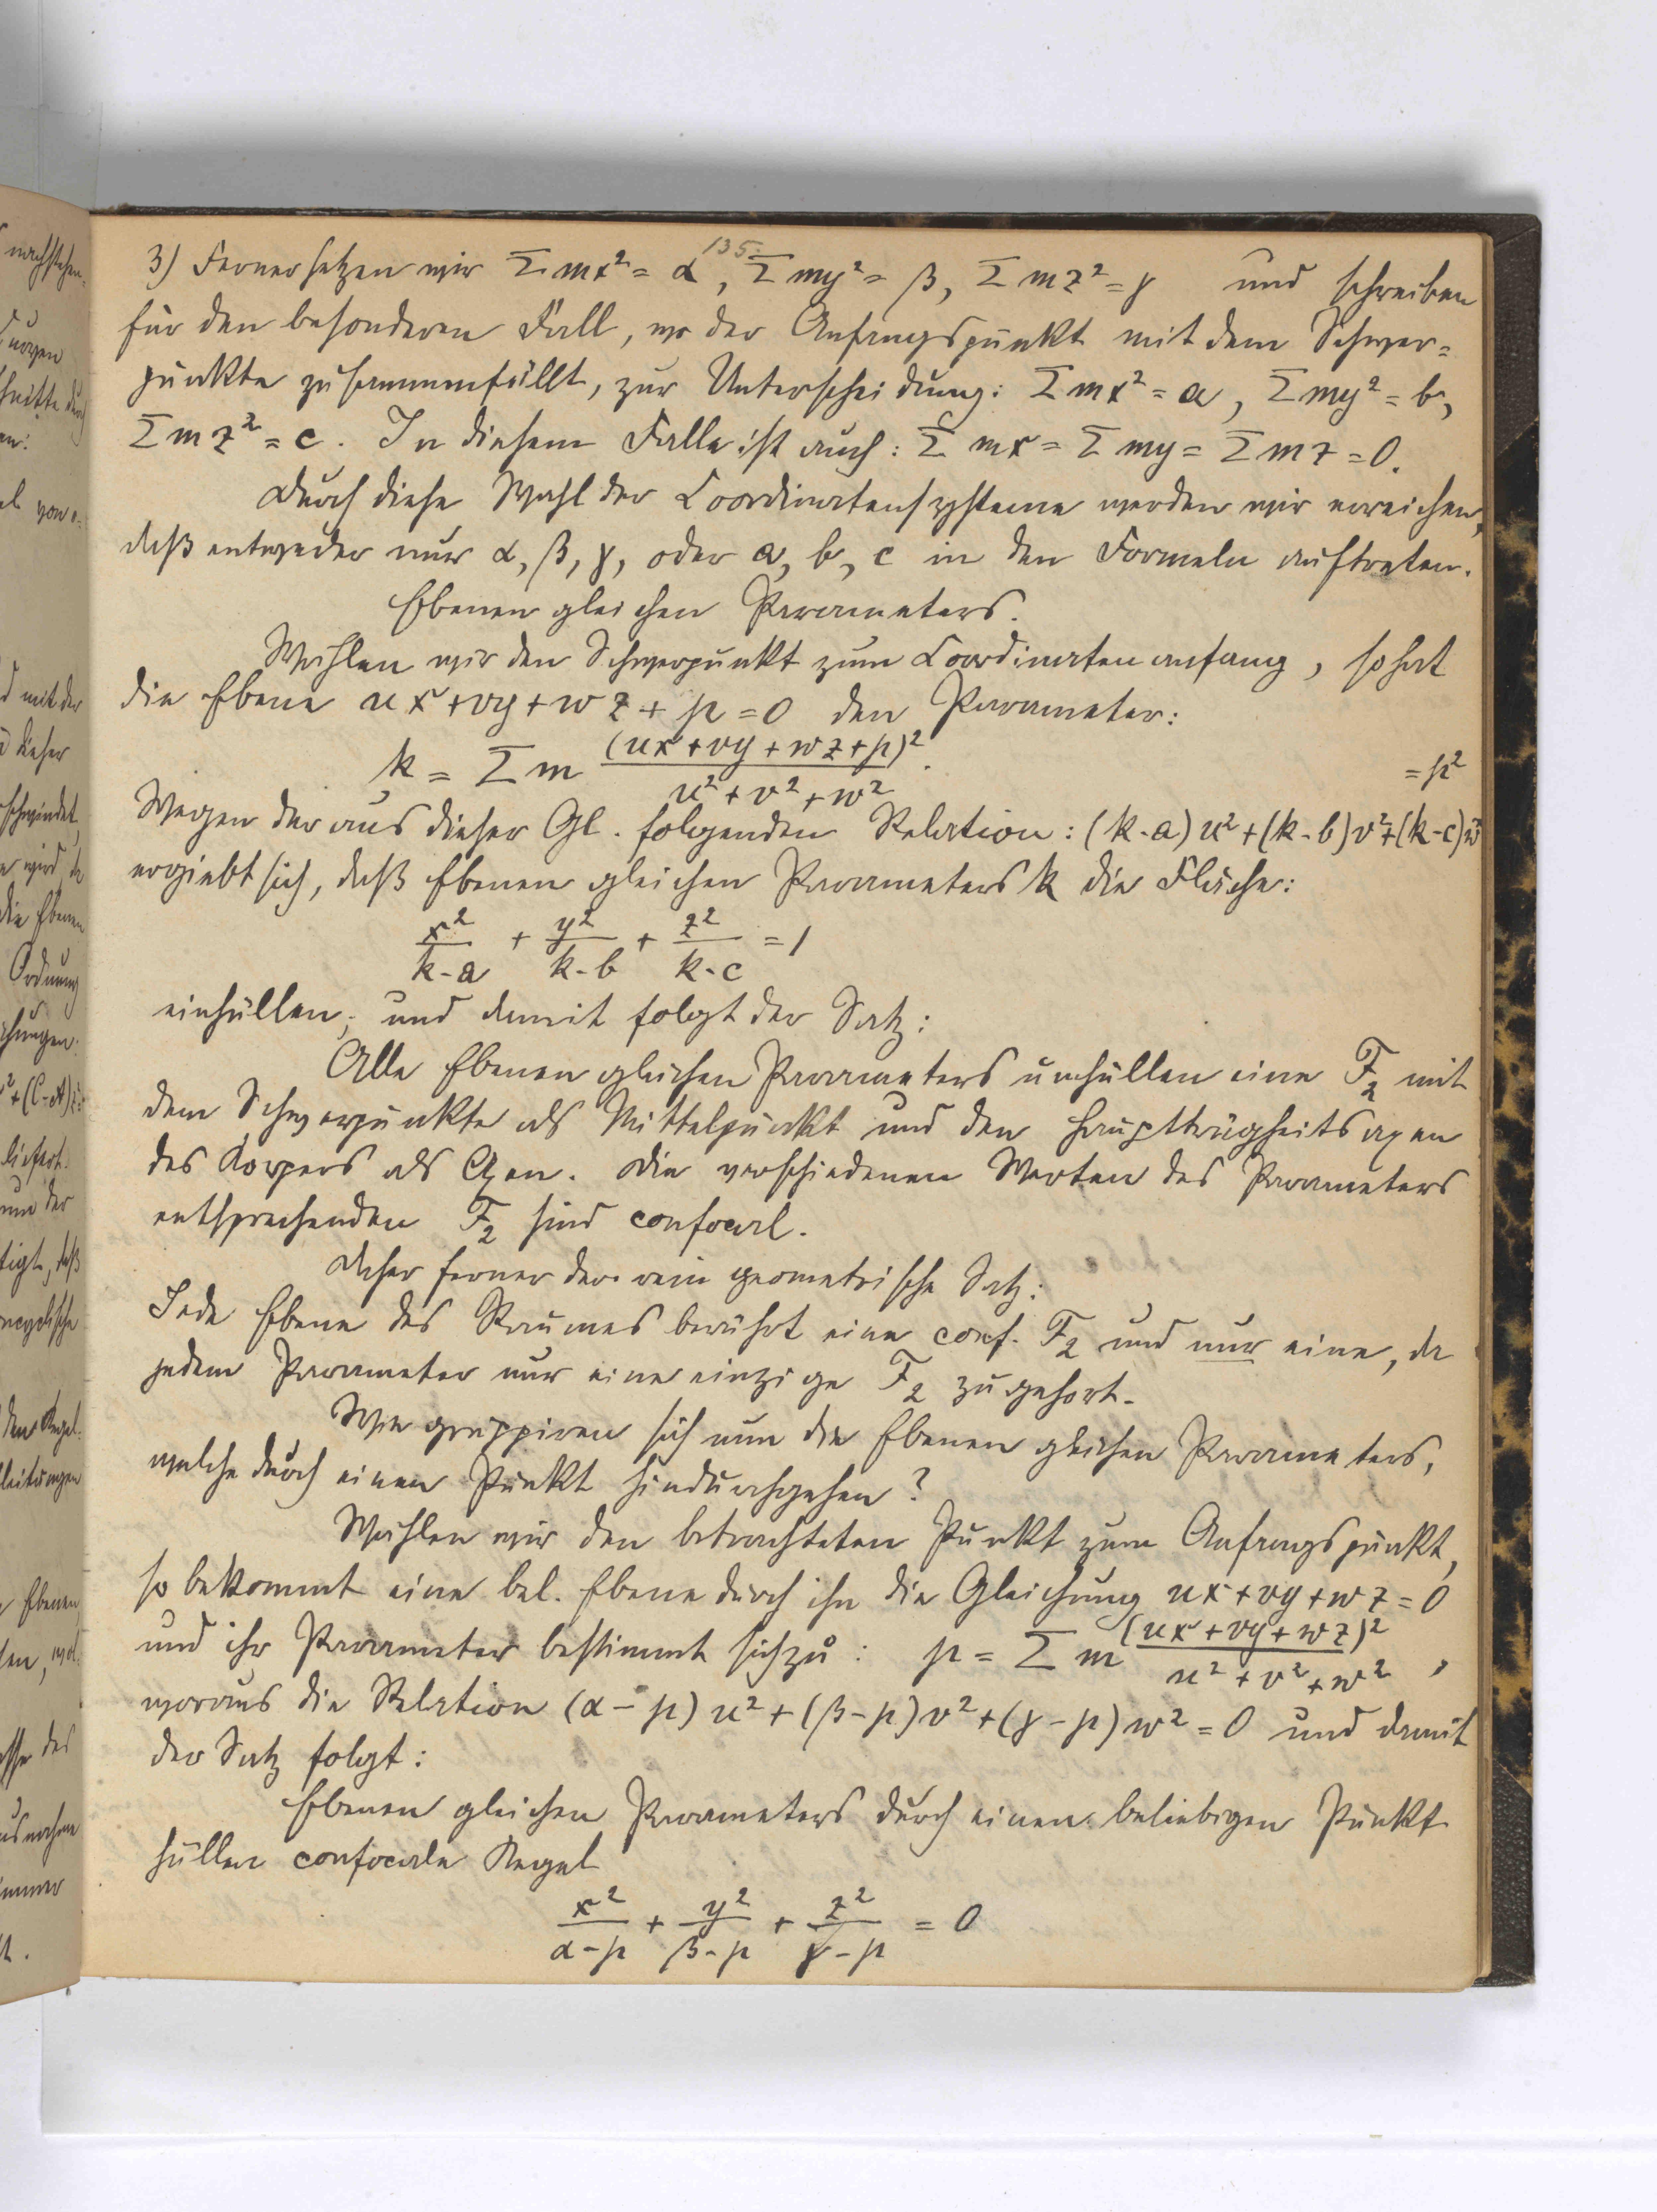 135.
3) Ferner setzen wir Σmx² = α, Σmy² = β, Σmz² = γ und schreiben
für den besonderen Fall, wo der Anfangspunkt mit dem Schwer=
punkte zusammenfällt, zur Unterscheidung: Σmx² = a, Σmy² = b,
Σmz² = c. In diesem Falle ist auch: Σmx = Σmy = Σmz = 0.
Durch diese Wahl der Coordinatensysteme werden wir erreichen,
daß entweder nur α, β, γ, oder a, b, c in den Formeln auftreten.
Ebenen gleichen Parameters.
Wählen wir den Schwerpunkt zum Coordinatenanfang, so hat
die Ebene ux + vy + wz + p = 0 den Parameter:
k = Σm (ux + vy + wz + p)² / (u² + v² + w²).
Wegen der aus dieser Gl. folgenden Relation: (k-a)u² + (k-b)v² + (k-c)w² = p²
ergiebt sich, daß Ebenen gleichen Parameters k die Fläche:
x²/(k-a) + y²/(k-b) + z²/(k-c) = 1
einhüllen; und damit folgt der Satz:
Alle Ebenen gleichen Parameters umhüllen eine F₂ mit
dem Schwerpunkte als Mittelpunkt und den Hauptträgheitsaxen
des Körpers als Axen. Die verschiedenen Werten des Parameters
entsprechenden F₂ sind confocal.
Daher ferner der rein geometrische Satz:
Jede Ebene des Raumes berührt eine conf. F₂ und nur eine, da
jedem Parameter nur eine einzige F₂ zugehört.
Wie gruppiren sich nun die Ebenen gleichen Parameters,
welche durch einen Punkt hindurchgehen?
Wählen wir den betrachteten Punkt zum Anfangspunkt,
so bekommt eine bel. Ebene durch ihn die Gleichung ux + vy + wz = 0
und ihr Parameter bestimmt sich zu: p = Σm (ux + vy + wz)² / (u² + v² + w²),
woraus die Relation (α - p)u² + (β - p)v² + (γ - p)w² = 0 und damit
der Satz folgt:
Ebenen gleichen Parameters durch einen beliebigen Punkt
hüllen confocale Kegel
x²/(α-p) + y²/(β-p) + z²/(γ-p) = 0